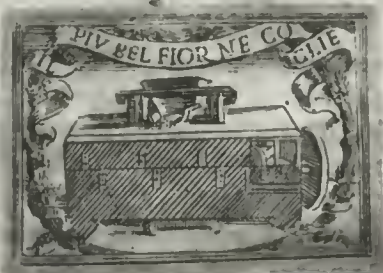 IL PIV BEL FIOR NE CO GLIE